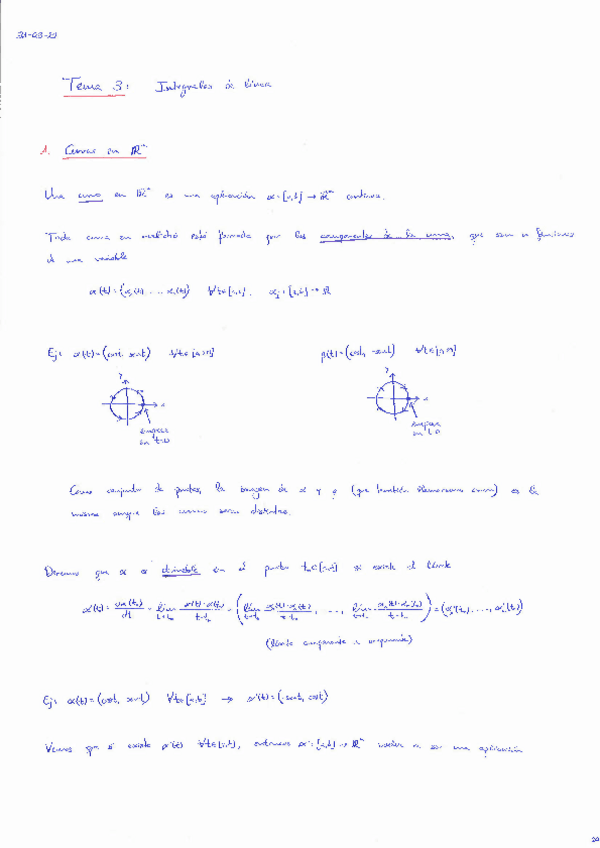 Tema 3: Integrales de línea
1. Curvas en ℝⁿ
Una curva en ℝⁿ es una aplicación α: [a,b] → ℝⁿ continua.
Toda curva en está formada por las componentes de la curva, que son n funciones
de una variable
α(t) = (α₁(t), ..., αₙ(t)) ∀t∈[a,b], αⱼ: [a,b] → ℝ
Ej: α(t) = (cost, sent) ∀t∈ β(t) = (cost, -sent) ∀t∈
y y
x x
empieza empieza
en t=0 en t=0
Como conjunto de puntos, la imagen de α y β (que también llamaremos curva) es la
misma aunque las curvas sean distintas.
Diremos que α es derivable en el punto t₀∈[a,b] si existe el límite
= (α₁'(t₀), ..., αₙ'(t₀))
(límite componente a componente)
Ej: α(t) = (cost, sent) ∀t∈[a,b] → α'(t) = (-sent, cost)
Vemos que si existe α'(t) ∀t∈[a,b], entonces α': [a,b] → ℝⁿ vuelve a ser una aplicación